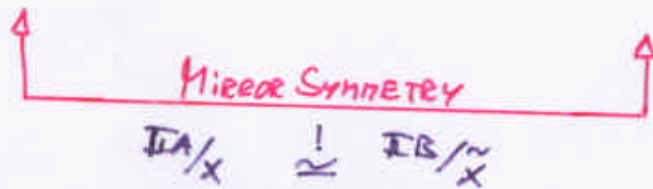 MIRROR SYMMETRY
IIA/X ≃! IIB/X̃